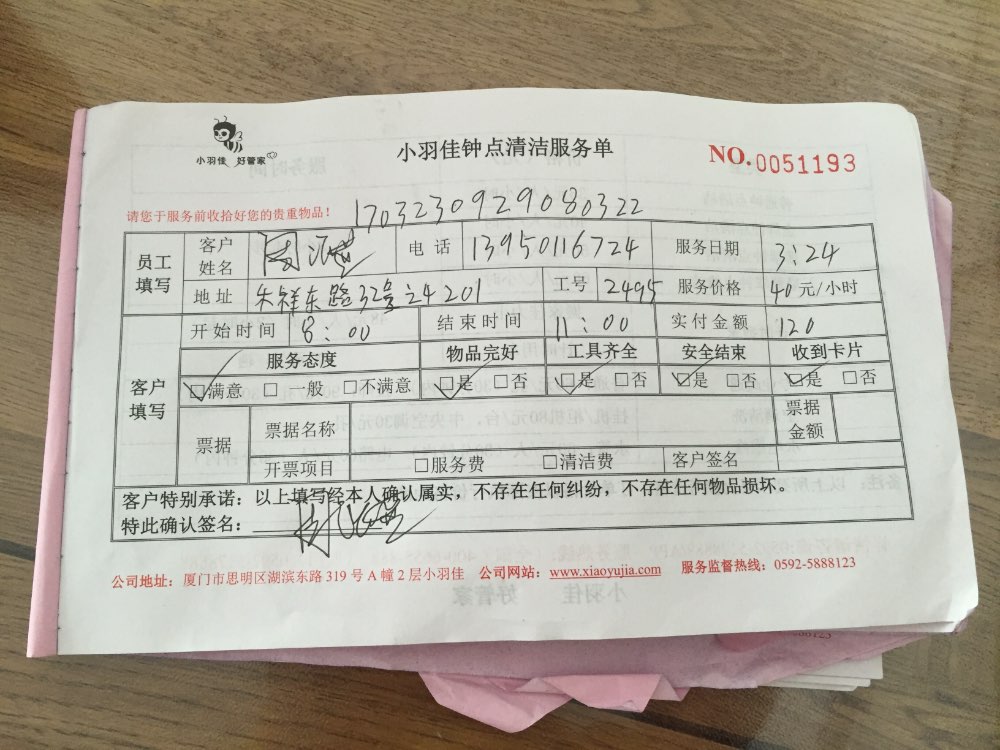 小羽佳 好管家
小羽佳钟点清洁服务单
NO.0051193
请您于服务前收拾好您的贵重物品！
1703230929080322
员工填写 客户姓名 周 电话 13950116724 服务日期 3:24
地址 东路32号之4 201 工号 2495 服务价格 40元/小时
客户填写 开始时间 8:00 结束时间 11:00 实付金额 120
服务态度 物品完好 工具齐全 安全结束 收到卡片
☐满意 ☐一般 ☐不满意 ☐是 ☐否 ☐是 ☐否 ☐是 ☐否 ☐是 ☐否
票据 票据名称 票据金额
开票项目 ☐服务费 ☐清洁费 客户签名
客户特别承诺：以上填写经本人确认属实，不存在任何纠纷，不存在任何物品损坏。
特此确认签名：
公司地址：厦门市思明区湖滨东路 319 号 A 幢 2 层小羽佳 公司网站：www.xiaoyujia.com 服务监督热线：0592-5888123